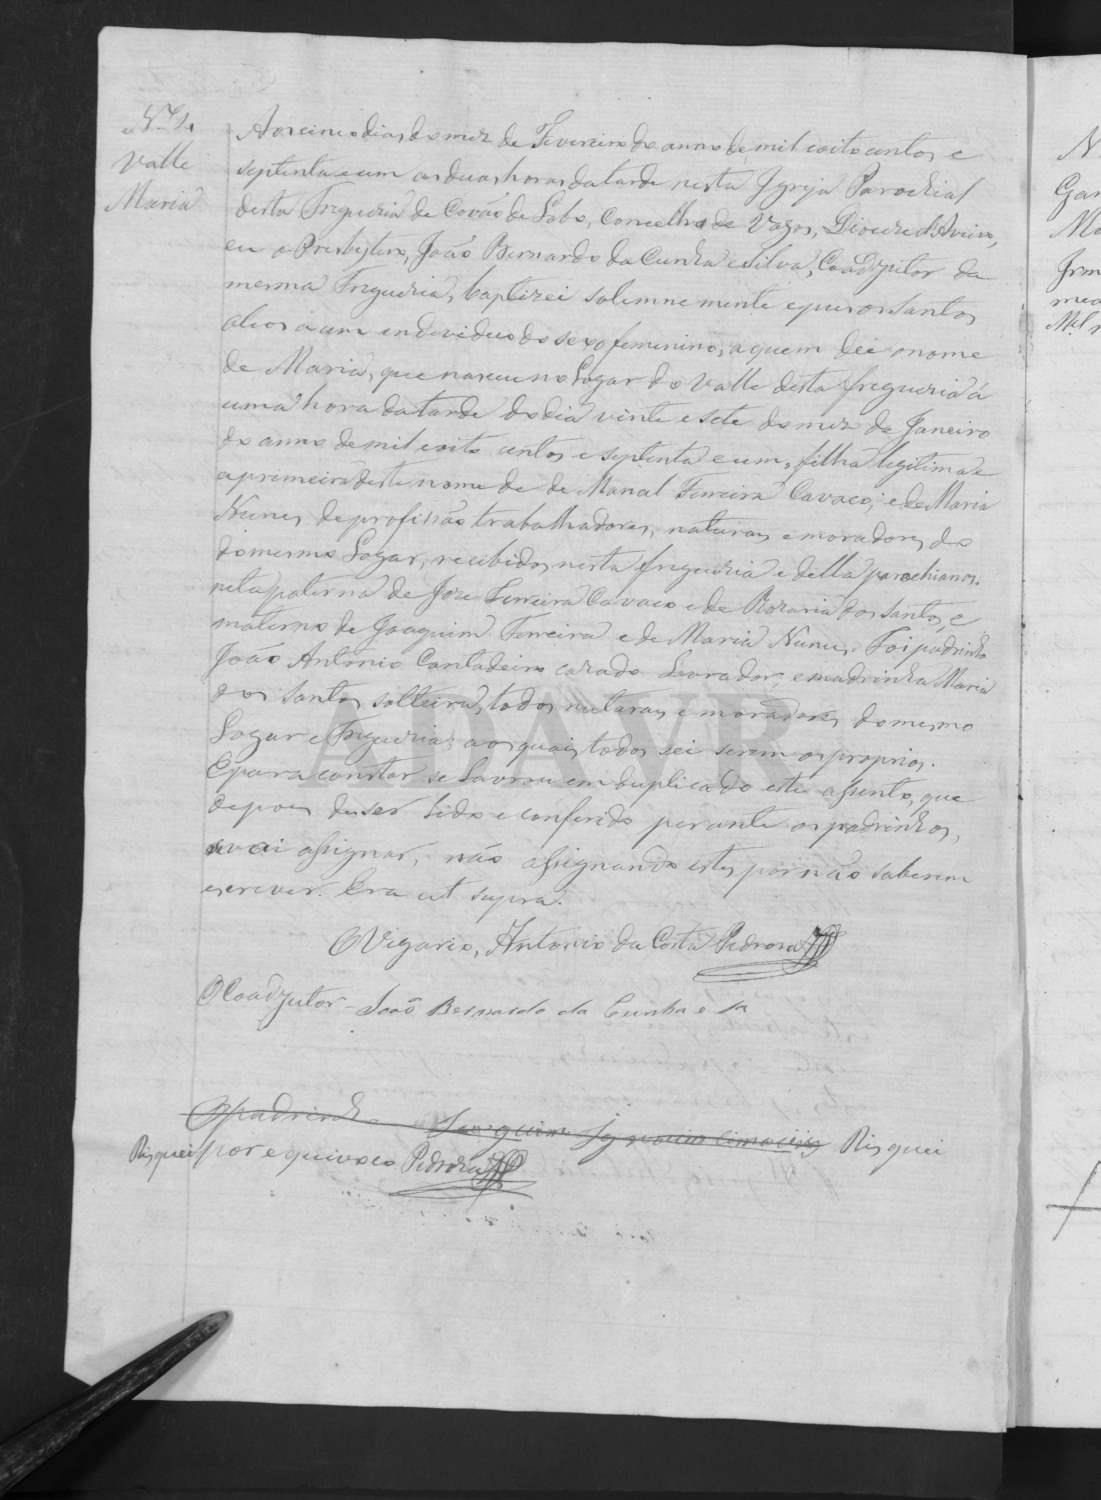 Nº 4
Valle
Maria
Aos cinco dias do mez de Fevereiro do anno de mil oito centos e
septenta e um as duas horas da tarde nesta Igreja Parochial
desta Freguezia de Covão do Lobo, Concelho de Vagos, Diocese d'Aveiro,
eu o Presbytero, João Bernardo da Cunha e Silva, Coadjutor da
mesma Freguezia, baptizei solemne mente e puz os Santos
oleos a um endeviduo do sexo femenino, a quem dei o nome
de Maria, que nasceu no Logar do Valle desta freguezia á
uma hora da tarde do dia vinte e sete do mez de Janeiro
do anno de mil oito centos e septenta e um, filha legitima e
a premeira deste nome de de Manoel Ferreira Cavaco, e de Maria
Nunes de profissão trabalhadores, naturaes e moradores do
do mesmo Logar, recibidos nesta freguezia e della parochianos.
neta paterna de Joze Ferreira Cavaco e de Rozaria dos Santos, e
materna de Joaquim Ferreira e de Maria Nunes. Foi padrinho
João Antonio Cantadeiro cazado Lavrador, e madrinha Maria
dos Santos solteira, todos naturaes e moradores do mesmo
Logar e Freguezia, aos quaes todos sei serem os proprios.
E para constar se lavrou em duplicado este assento, que
depois de ser lido e conferido perante os padrinhos,
vai assignar, não assignando estes por não saberem
escrever. Era ut supra.
O Vigario, Antonio da Costa Pedroza
O Coadjutor - João Bernardo da Cunha e Sa
O padrinho Joaquim Risquei
Risquei por equivoco Pedroza
ADAVR
N
Gan
Ma